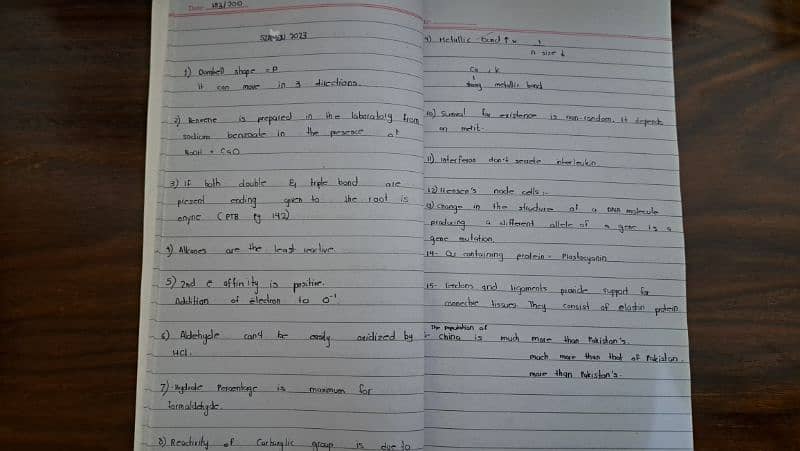 Date: 183/200
SZABMU 2023
1) Dumbell shape = P
It can move in 3 directions.
2) Benzene is prepared in the laboratory from
sodium benzoate in the presence of
NaOH + CaO
3) If both double & triple bond are
present ending given to the root is
enyne (PTB Pg 142)
4) Alkanes are the least reactive.
5) 2nd e affinity is positive.
Addition of electron to O⁻¹
6) Aldehyde can't be easily oxidized by
HCl.
7) Hydrate Percentage is maximum for
formaldehyde.
8) Reactivity of Carboxylic group is due to
9) Metallic bond ↑
size ↓
Ca, K
strong metallic bond
10) Survival for existence is non-random. It depends
on merit.
11) Interferon don't secrete interleukin
12) Hensen's node cells:-
13) Change in the structure of a DNA molecule
producing a different allele of a gene is a
gene mutation.
14- Cu containing protein - Plastocyanin
15- Tendons and ligaments provide support for
connective tissues. They consist of elastin protein.
The population of
China is much more than Pakistan's.
much more than that of Pakistan.
more than Pakistan's.